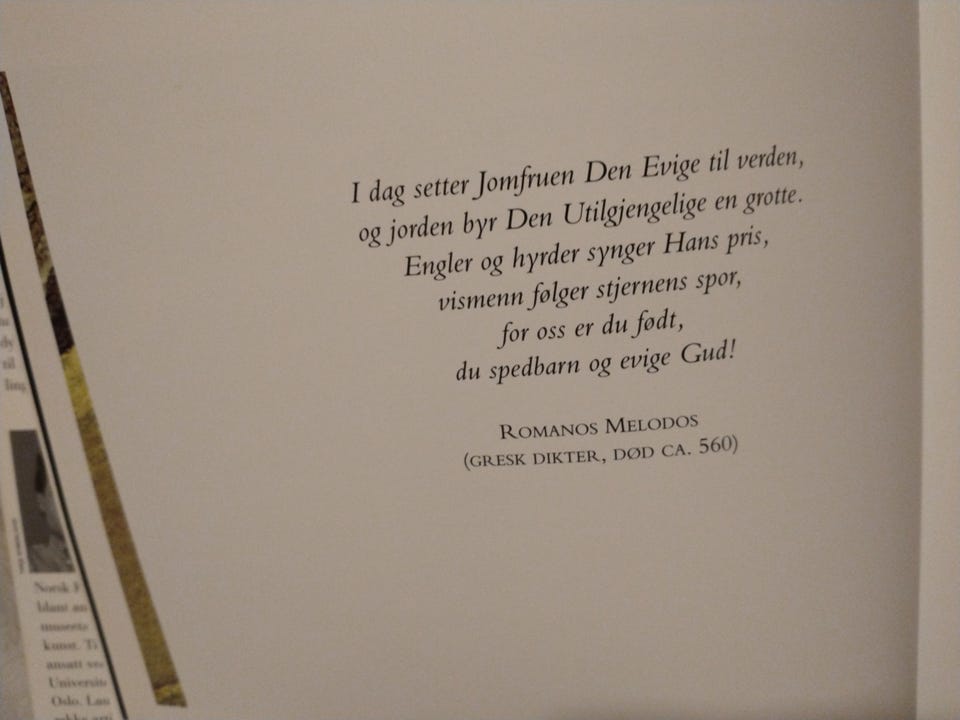 I dag setter Jomfruen Den Evige til verden,
og jorden byr Den Utilgjengelige en grotte.
Engler og hyrder synger Hans pris,
vismenn følger stjernens spor,
for oss er du født,
du spedbarn og evige Gud!
ROMANOS MELODOS
(GRESK DIKTER, DØD CA. 560)
til
Norsk
blant
kunst.
ansatt
Oslo.